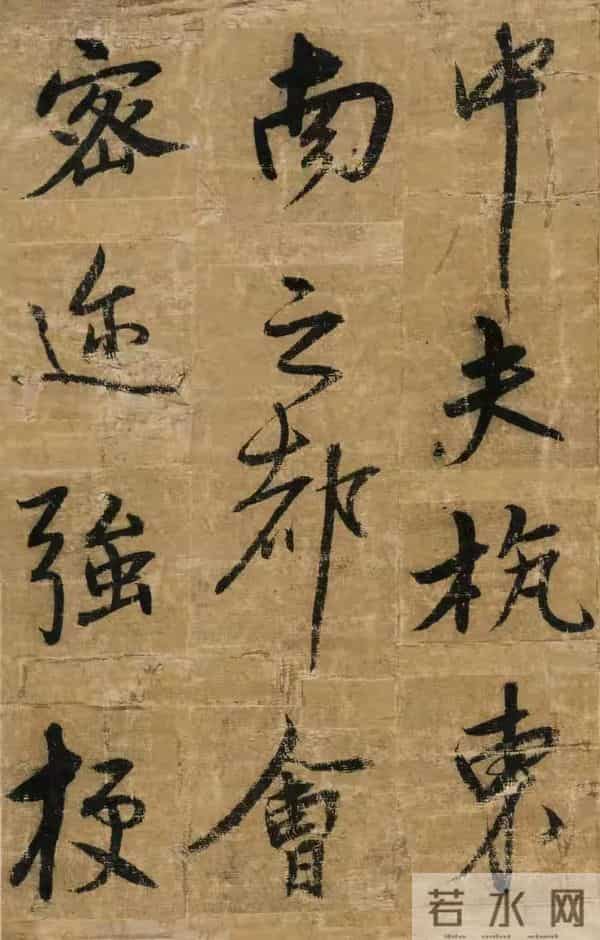 中夫杭東
南之都會
密迩強梗
若水网